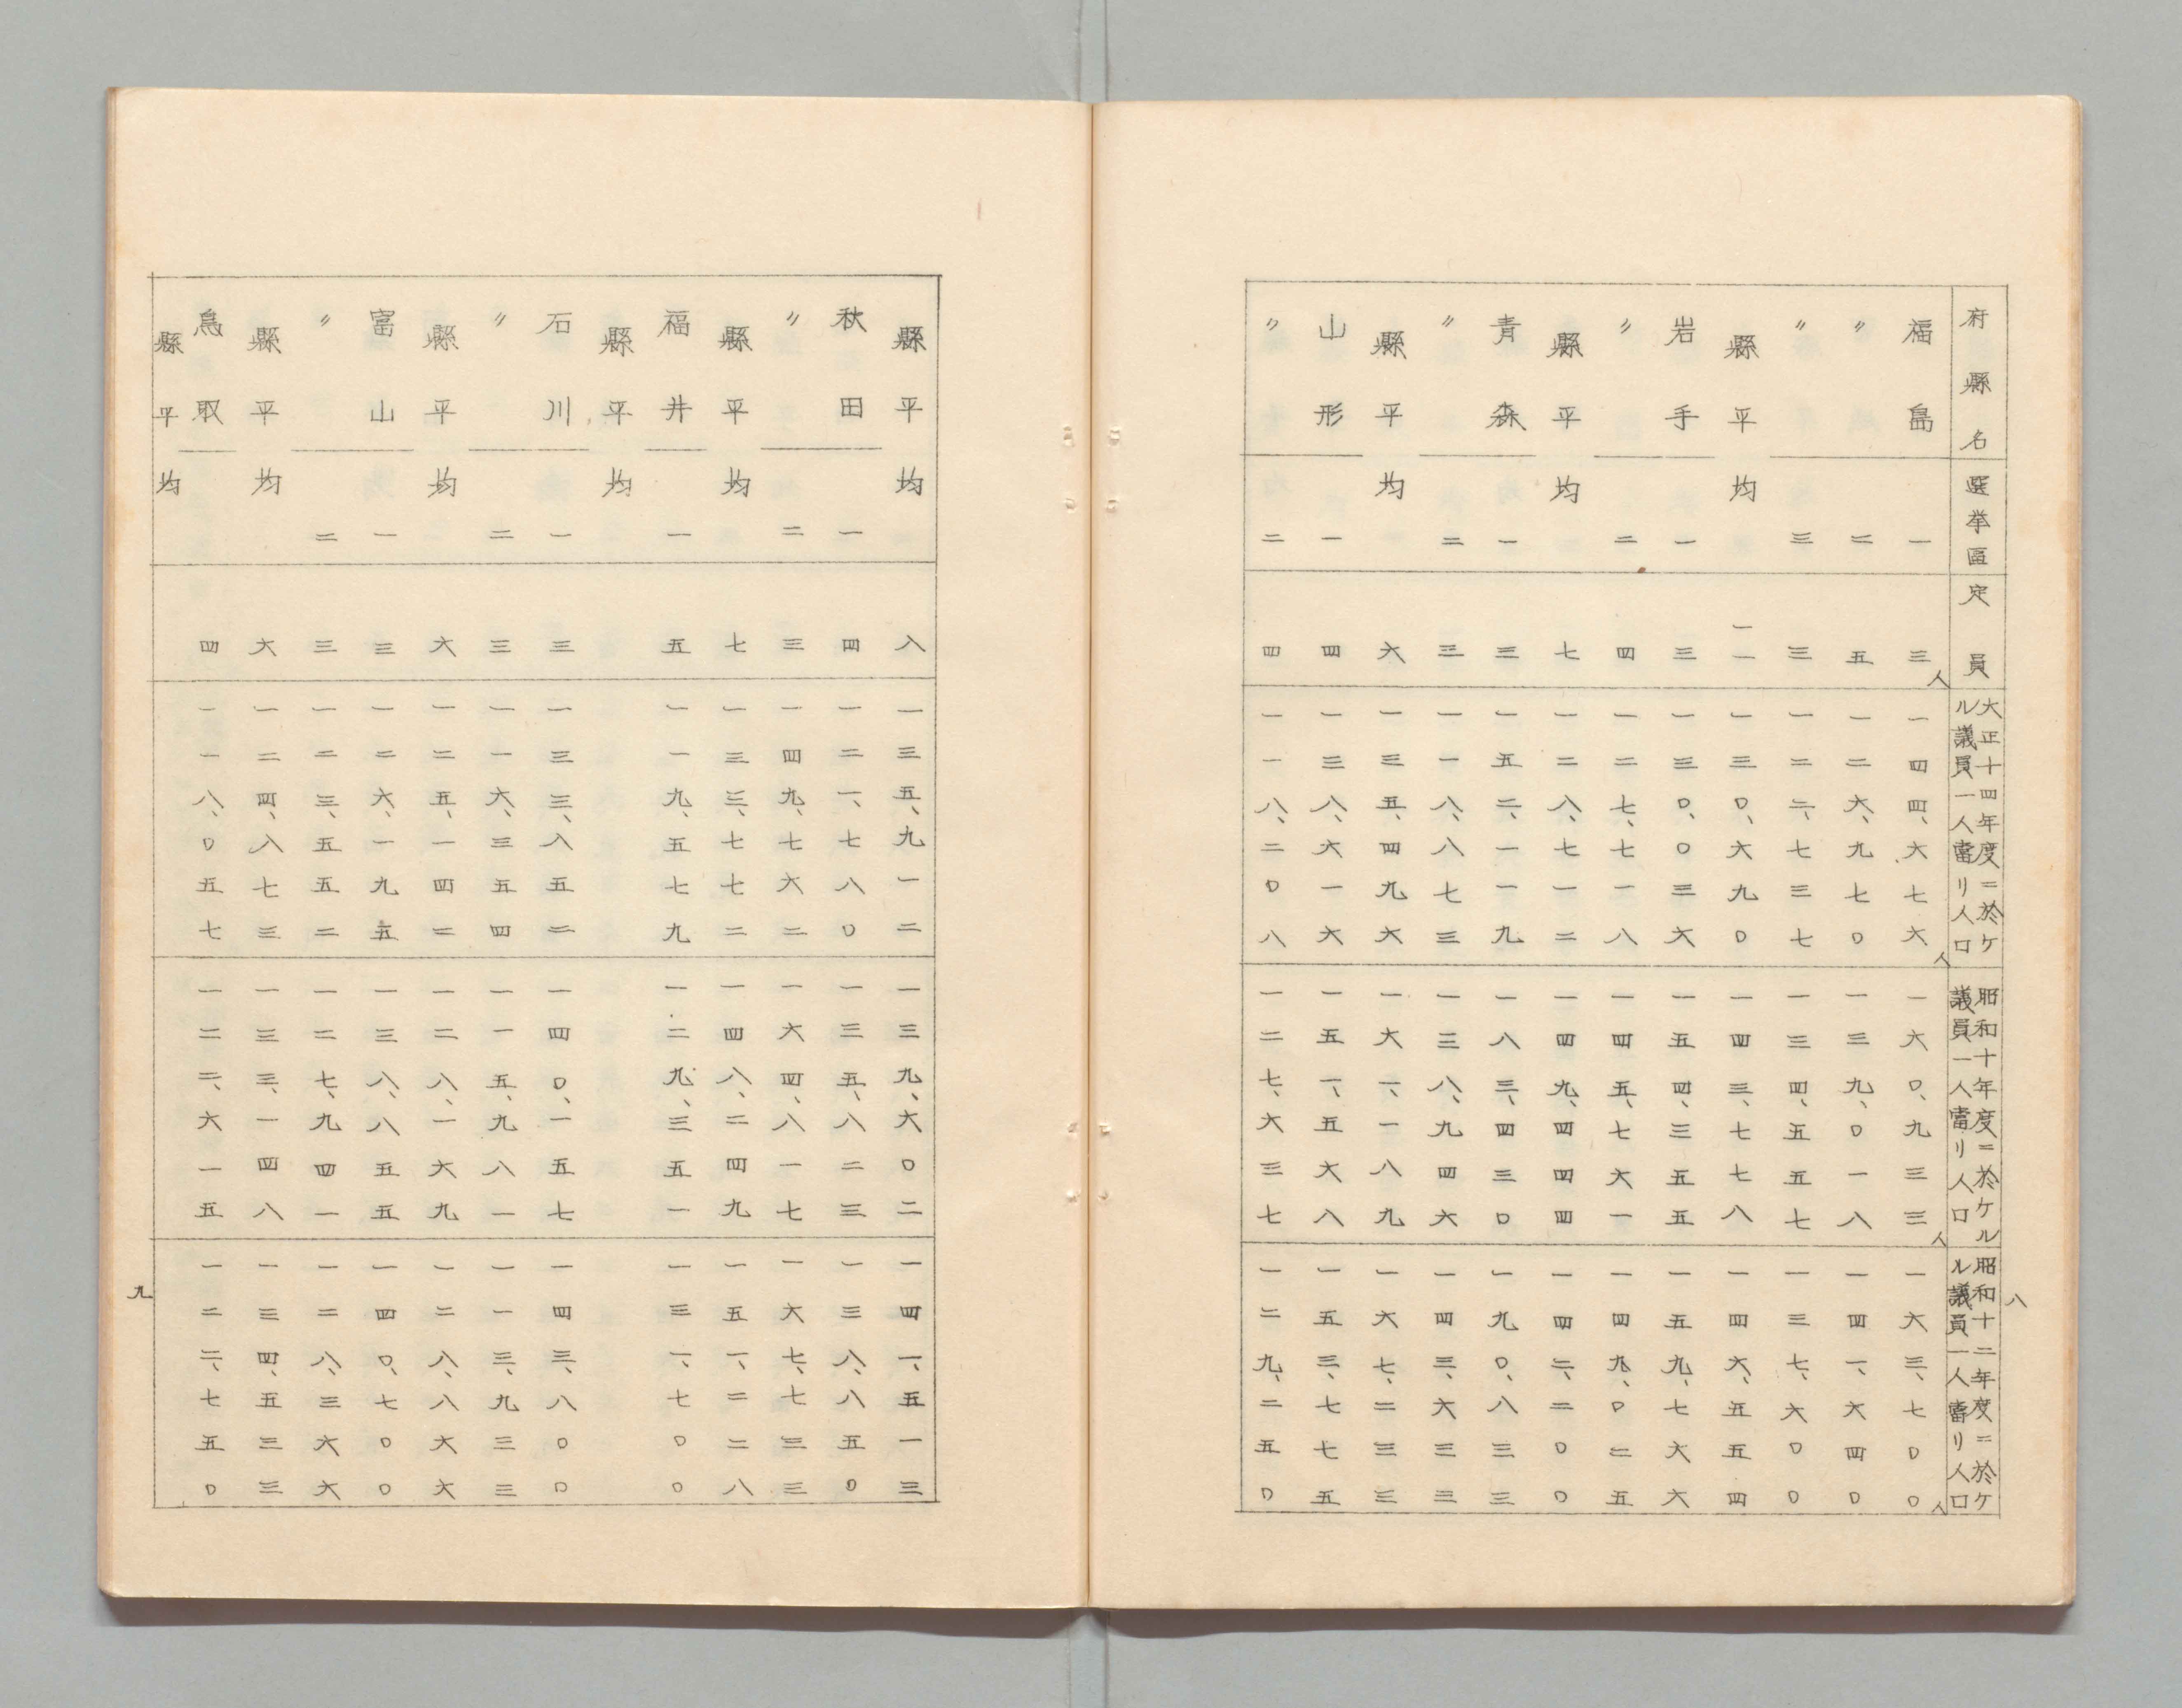 八
府縣名 選挙區 定員 大正十四年度ニ於ケル議員一人當リ人口 昭和十年度ニ於ケル議員一人當リ人口 昭和十二年度ニ於ケル議員一人當リ人口
福島 一 三人 一四四、六七六人 一六〇、九三三人 一六三、七〇〇人
〃 二 五 一二六、九七〇 一三九、〇一八 一四一、六四〇
〃 三 三 一二二、七三七 一三四、五五七 一三七、六〇〇
縣平均 一一 一三〇、六九〇 一四三、七七八 一四六、五五四
岩手 一 三 一三〇、〇三六 一五四、三五五 一五九、七六六
〃 二 四 一二七、七一八 一四五、七六一 一四九、〇二五
縣平均 七 一二八、七一二 一四九、四四四 一四二、二〇〇
青森 一 三 一五二、一一九 一八三、四三〇 一九〇、八三三
〃 二 三 一一八、八七三 一三八、九四六 一四三、六三三
縣平均 六 一三五、四九六 一六一、一八九 一六七、二三三
山形 一 四 一三八、六一六 一五一、五六八 一五三、七七五
〃 二 四 一一八、二〇八 一二七、六三七 一二九、二五〇
縣平均 八 一三五、九一二 一三九、六〇二 一四一、五一三
秋田 一 四 一二一、七八〇 一三五、八二三 一三八、八五〇
〃 二 三 一四九、七六二 一六四、八一七 一六七、七三三
縣平均 七 一三三、七七二 一四八、二四九 一五一、二二八
福井 一 五 一一九、五七九 一二九、三五一 一三一、七〇〇
縣平均
石川 一 三 一三三、八五二 一四〇、一五七 一四三、八〇〇
〃 二 三 一一六、三五四 一一五、九八一 一一三、九三三
縣平均 六 一二五、一四二 一二八、一六九 一二八、八六六
富山 一 三 一二六、一九五 一三八、八五五 一四〇、七〇〇
〃 二 三 一二三、五五二 一二七、九四一 一二八、三六六
縣平均 六 一二四、八七三 一三三、一四八 一三四、五三三
鳥取 四 一一八、〇五七 一二二、六一五 一二二、七五〇
縣平均
九